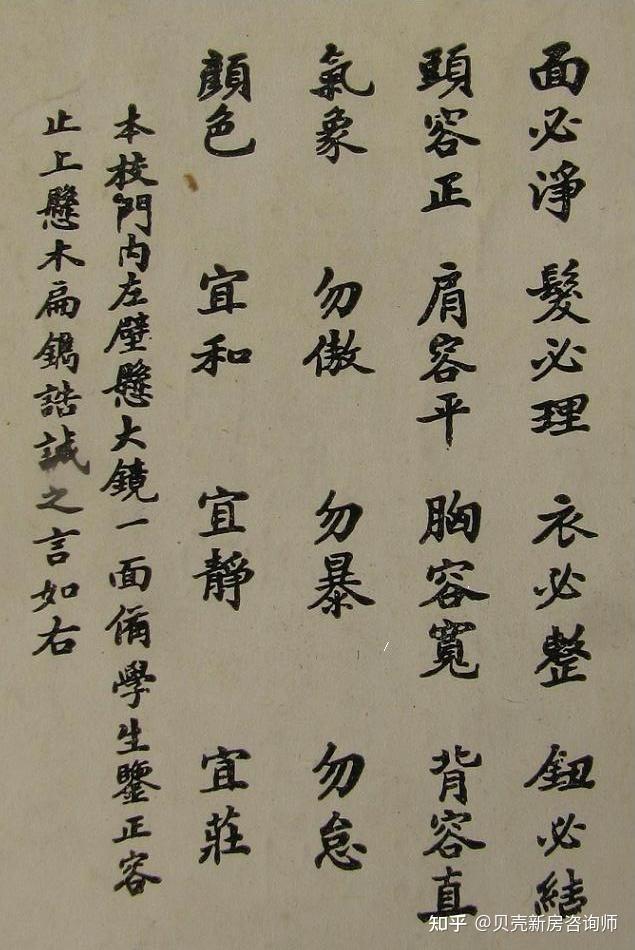 面必淨 髮必理 衣必整 鈕必結
頭容正 肩容平 胸容寬 背容直
氣象 勿傲 勿暴 勿怠
顏色 宜和 宜靜 宜莊
本校門內左壁懸大鏡一面備學生鑒正容
止上懸木扁鐫誥誡之言如右
知乎 @贝壳新房咨询师